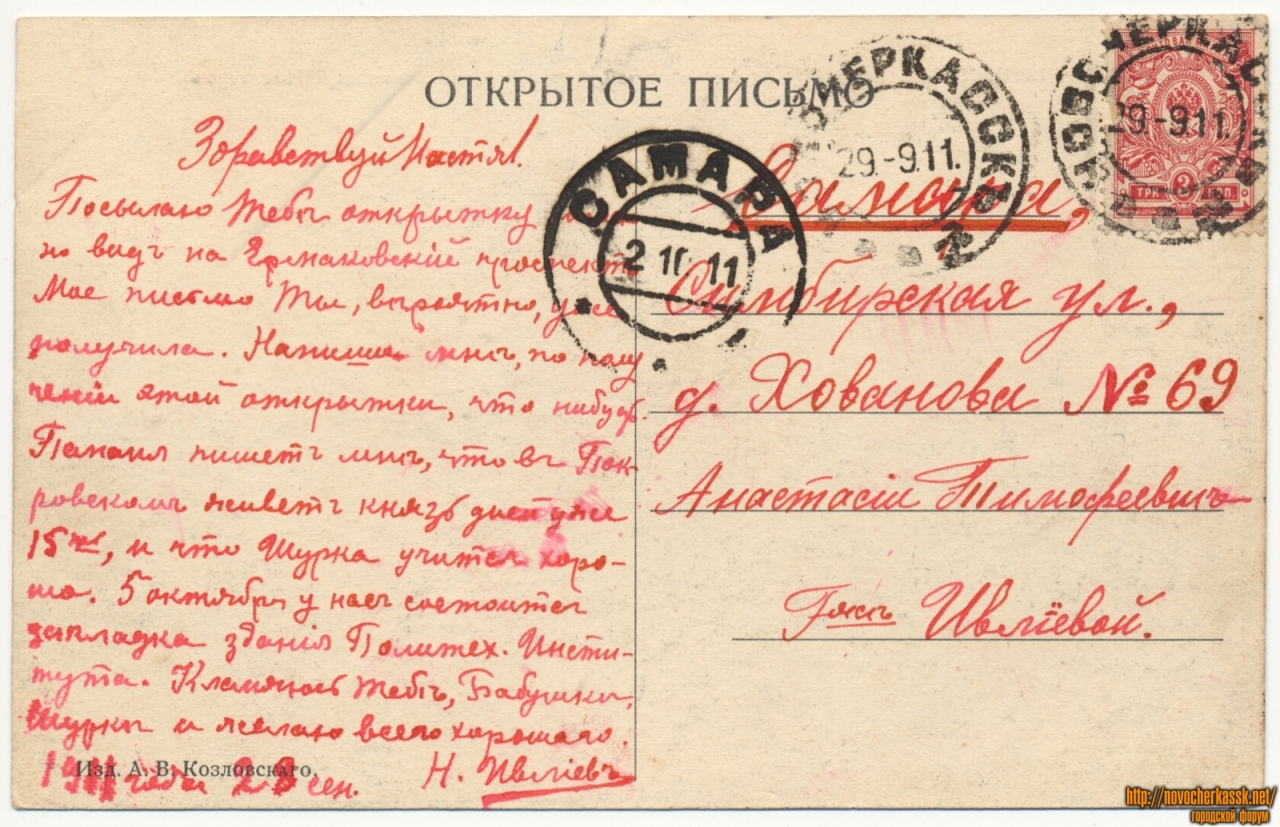 ОТКРЫТОЕ ПИСЬМО
Здравствуй Настя!
Посылаю Тебѣ открытку
но видъ на Ермаковскій проспектъ
Мое письмо Ты, вѣроятно, уже
получила. Напиши мнѣ, по полу
ченіи этой открытки, что нибудь.
Папаша пишетъ мнѣ, что въ Пок-
ровскомъ живетъ князь уже
15, и что Шурка учится хоро-
шо. 5 октября у насъ состоится
закладка зданія Политех. Инсти-
тута. Кланяюсь Тебѣ, Бабушкѣ,
Шуркѣ и желаю всего хорошаго.
Н. Ивліевъ
1911 года сен.
Изд. А. В. Козловскаго.
Самара,
Симбирская ул.,
д. Хованова № 69
Анастасіи Тимофеевнѣ
Г-жѣ Ивліевой.
САМАРА
2 10 11
НОВОЧЕРКАССКЪ
29.-9.11.
НОВОЧЕРКАССКЪ
29.-9.11.
ТРИ 3 КОП.
http://novocherkassk.net/
городской форум